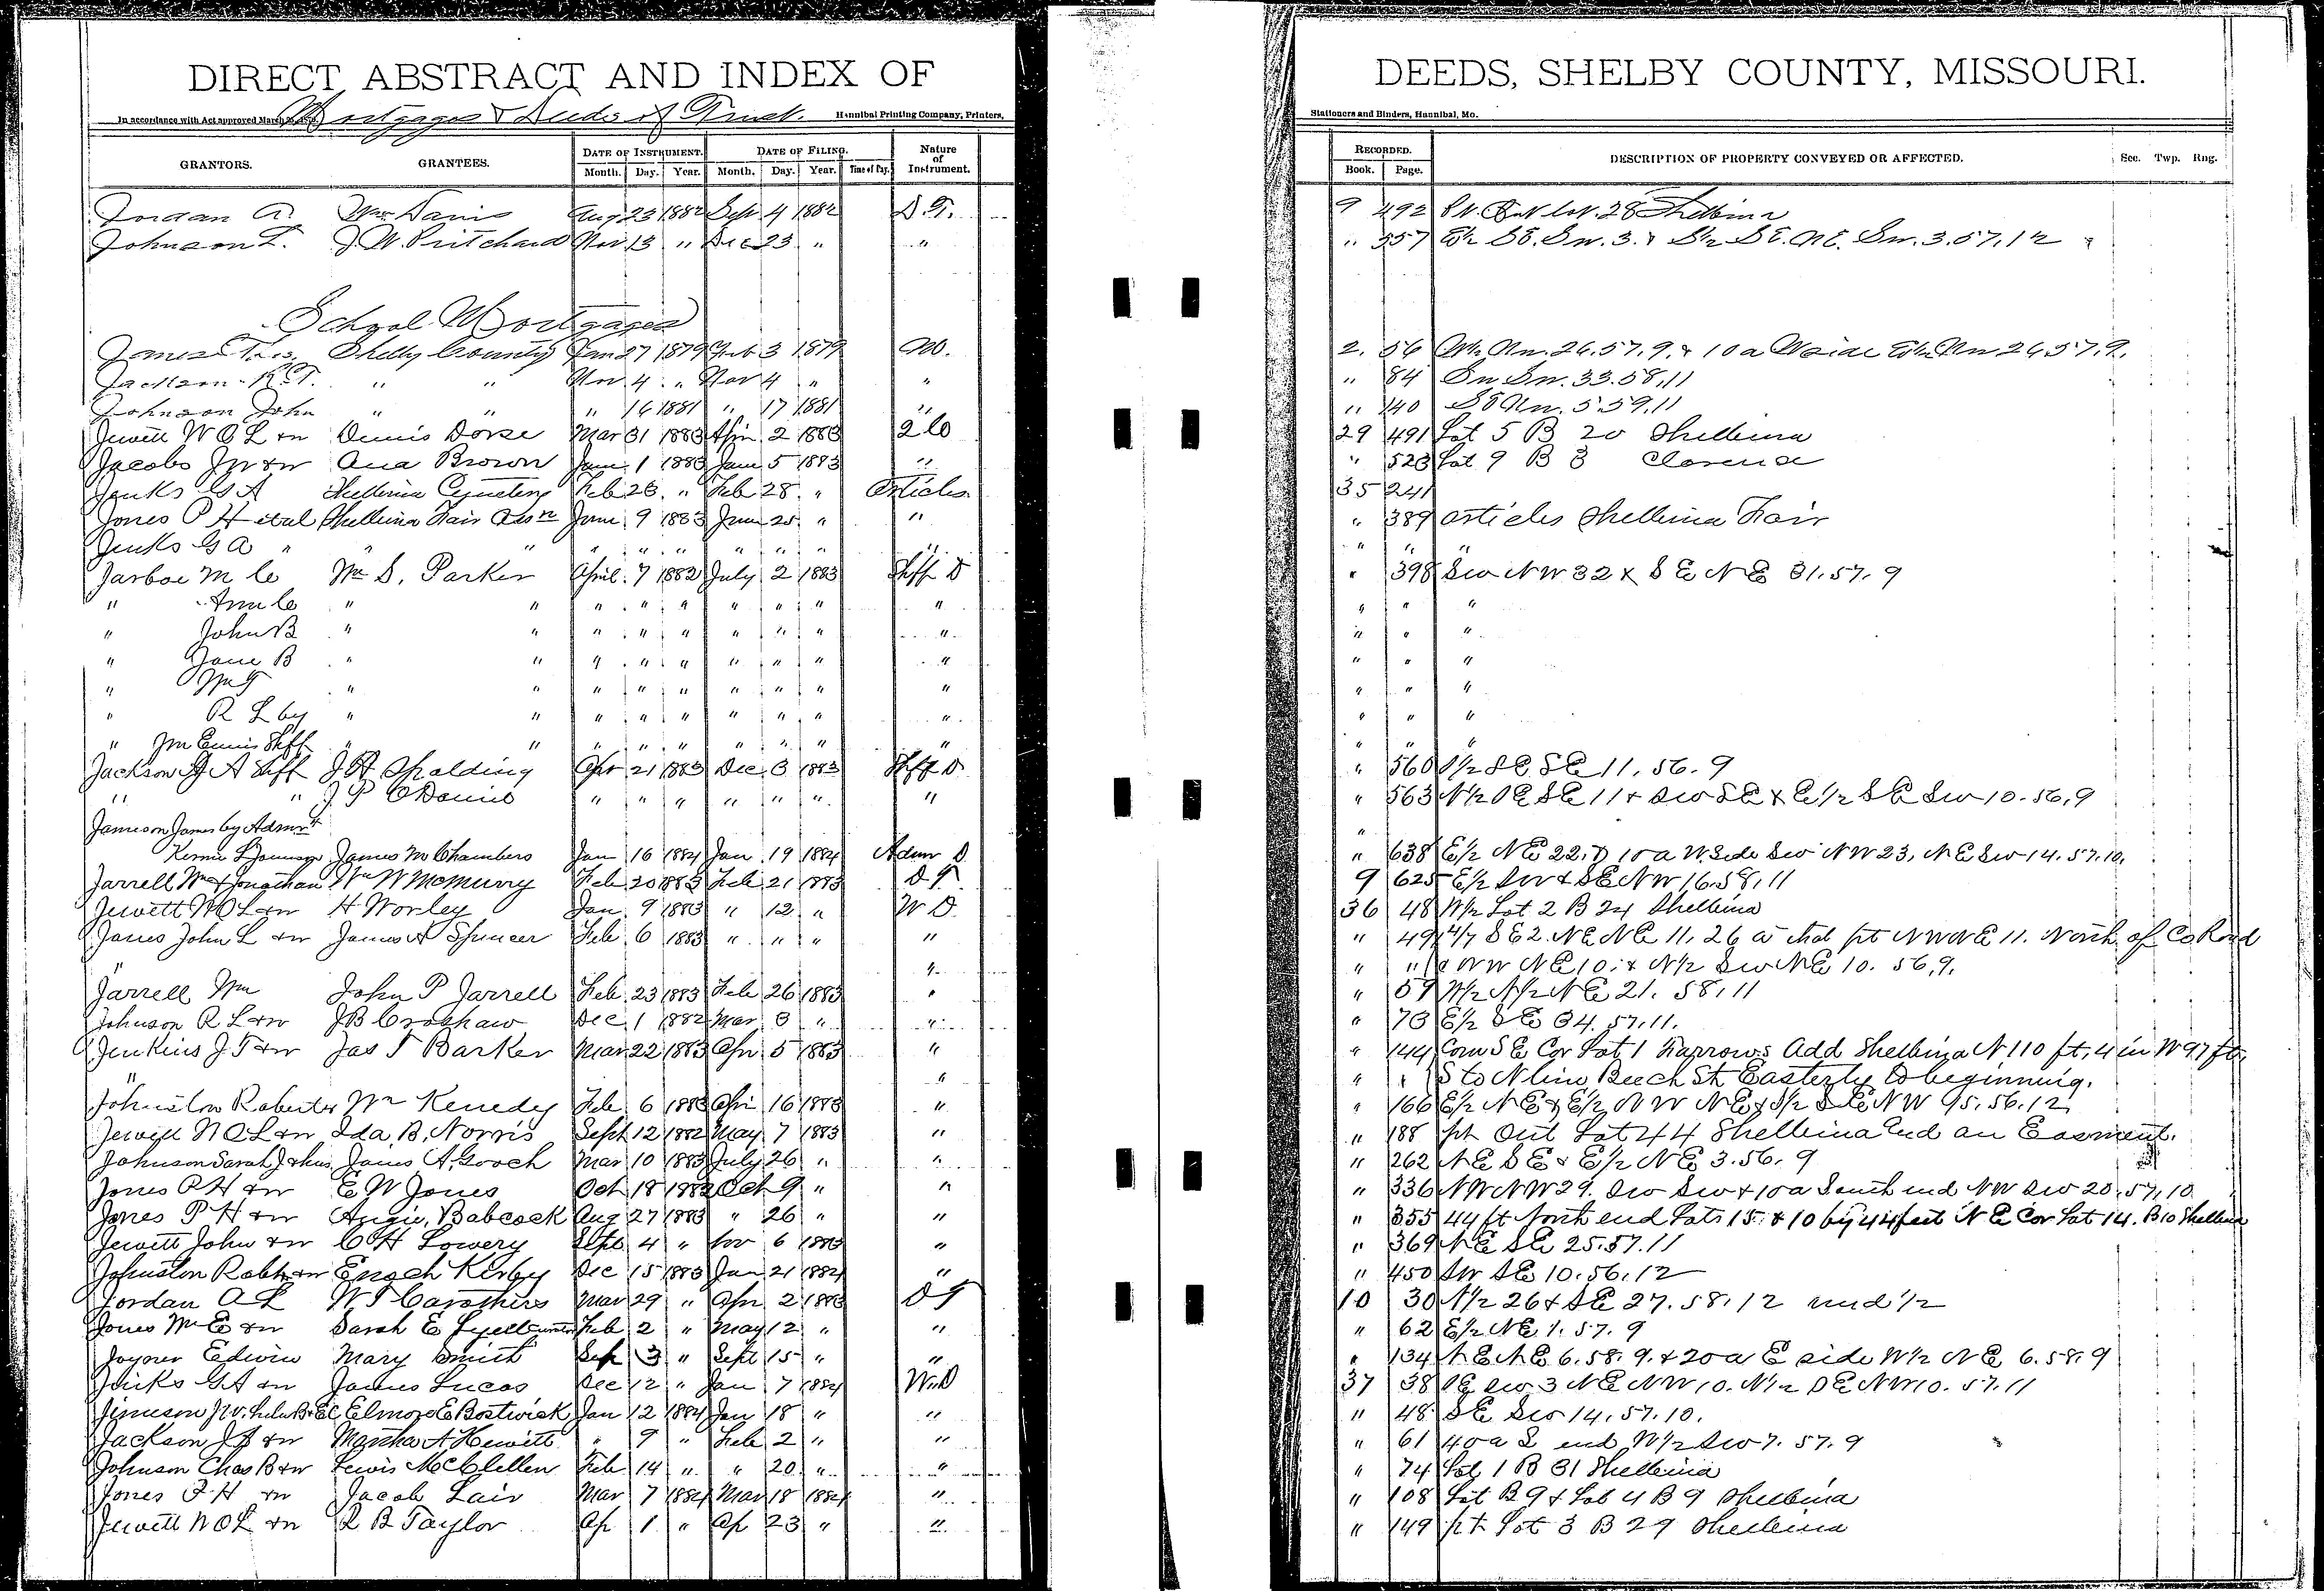 DIRECT ABSTRACT AND INDEX OF
Mortgages & Deeds of Trust.
In accordance with Act approved March Hannibal Printing Company, Printers,
GRANTORS. GRANTEES. DATE OF INSTRUMENT. DATE OF FILING. Nature of Instrument.
Month. Day. Year. Month. Day. Year. Time of Day.
Jordan A. Wm Davis Aug 23 1882 Sept 4 1882 D.T.
Johnson L. J. W. Pritchard Nov 13 " Dec 23 " "
School Mortgages
James Thos. Shelby County Jan 27 1879 Feb 3 1879 Mo.
Jackson R.T. " " Nov 4 " Nov 4 " "
Johnson John " " " 16 1881 " 17 1881 "
Jewett W O L & w Dennis Dorse Mar 31 1883 Apr 2 1883
Jacobs & w Ana Brown June 1 1883 June 5 1883 "
Jenks G A Shelbina Cemetery Feb 26 " Feb 28 " Articles
Jones P H et al Shelbina Fair Assn June 9 1883 June 25 " "
Jenks G A " " " " " " " " " "
Jarboe M C Wm S. Parker April 7 1882 July 2 1883 Shff D
" Ann C " " " " " " " " "
" John B " " " " " " " " "
" Jane B " " " " " " " " "
" " " " " " " " " "
" R L by " " " " " " " " "
" Jm Ennis Shff " " " " " " " " "
Jackson J A Shff J H Spalding Apr 21 1883 Dec 3 1883 Shff D
" " J P O'Daniel " " " " " " "
Jameson James by Admr
Jameson James M Chambers Jan 16 1884 Jan 19 1884 Admr D
Jarrell Wm & Jonathan Wm W McMurry Feb 20 1883 Feb 21 1883 D T
Jewett W O L & w H Worley Jan 9 1883 " 12 " W D
Janes John L & w James A Spencer Feb 6 1883 " " " "
" "
Jarrell Wm John P Jarrell Feb 23 1883 Feb 26 1883 "
Johnson R L & w J B Crashaw Dec 1 1882 Mar 3 " "
Jenkins J T & w Jas T Barker Mar 22 1883 Apr 5 1883 "
" "
Johnston Wm Kenedy Feb 6 1883 Apr 16 1883 "
Jewett W O L & w Ida B. Norris Sept 12 1882 May 7 1883 "
Johnson Sarah J & hus James A. Gooch Mar 10 1883 July 26 " "
Jones P H & w E W Jones Oct 18 1882 Oct 9 " "
Jones P H & w Angie Babcock Aug 27 1883 " 26 " "
Jewett John & w C H Lowery Sept 4 " Nov 6 1883 "
Johnston Robt & w Enoch Kirby Dec 15 1883 Jan 21 1884 "
Jordan A L W T Carothers Mar 29 " Apr 2 1883 D T
Jones Wm E & w Sarah E Feb 2 " May 12 " "
Joyner Edwin Mary Smith Sep 3 " Sept 15 " "
Jenks G A & w James Lucas Dec 12 " Jan 7 1884 W.D
Jimeson Elmore E Bostwick Jan 12 1884 Jan 18 " "
Jackson & w Martha A Hewitt " 9 " Feb 2 " "
Johnson Chas B & w Lewis McClellen Feb 14 " " 20 " "
Jones P H & w Jacob Lair Mar 7 1884 Mar 18 1884 "
Jewett W O L & w R B Taylor Ap 1 " Ap 23 " "
DEEDS, SHELBY COUNTY, MISSOURI.
Stationers and Binders, Hannibal, Mo.
RECORDED. DESCRIPTION OF PROPERTY CONVEYED OR AFFECTED. Sec. Twp. Rng.
Book. Page.
9 492 Shelbina
" 557 E½ SE. Sw. 3. & S½ SE. NE. Sw. 3.57.12
2. 56 W½ Nw. 26.57.9. & 10a W side E½ Nw 26.57.9.
" 84 Sw Sw. 33.58.11
" 140 SE Nw. 5.59.11
29 491 Lot 5 B 20 Shelbina
" 523 Lot 9 B 3 Clarence
35 241
" 389 Articles Shelbina Fair
" " "
" 398 Sw NW 32 & S E N E 31.57.9
" " "
" " "
" " "
" " "
" " "
" " "
" 560 S½ SE SE 11.56.9
" 563 N½ SE SE 11 & SW SE & E½ SE SW 10.56.9
"
" 638 E½ NE 22, & 10a W. Side Sw NW 23, NE Sw 14.57.10.
9 625 E½ SW & SE NW 16.58.11
36 48 W½ Lot 2 B 24 Shelbina
" 49 NE NE 11. 26 a that pt NW NE 11. North of Co Road
" " NW NE 10. & N½ SW NE 10. 56,9.
" 59 W½ N½ NE 21. 58.11
" 73 E½ SE 34. 57.11.
" 144 Com S E Cor Lot 1 Farrows Add Shelbina N 110 ft. 4 in W 97 ft.
" " S to N line Beech St. Easterly to beginning.
" 166 E½ NE & E½ NW NE & S½ SE NW 56.12
" 188 pt Out Lot 44 Shelbina and an Easment.
" 262 NE SE & E½ NE 3.56.9
" 336 NW NW 29. Sw Sw & 10a South end NW Sw 20.57.10
" 355 44 ft North end Lots 15 & 10 by 44 feet N E Cor Lot 14. B 10 Shelbina
" 369 NE SE 25.57.11
" 450 SW SE 10.56.12
10 30 N½ 26 & SE 27.58.12 und ½
" 62 E½ NE 1.57.9
" 134 NE NE 6.58.9. & 20a E side W½ NE 6.58.9
37 38 SE Sw 3 NE NW 10. N½ SE NW 10. 57.11
" 48 SE Sw 14.57.10.
" 61 40 a S end W½ Sw 7.57.9
" 74 Lot 1 B 31 Shelbina
" 108 Lot B 9 & Lot 4 B 9 Shelbina
" 149 pt Lot 3 B 29 Shelbina